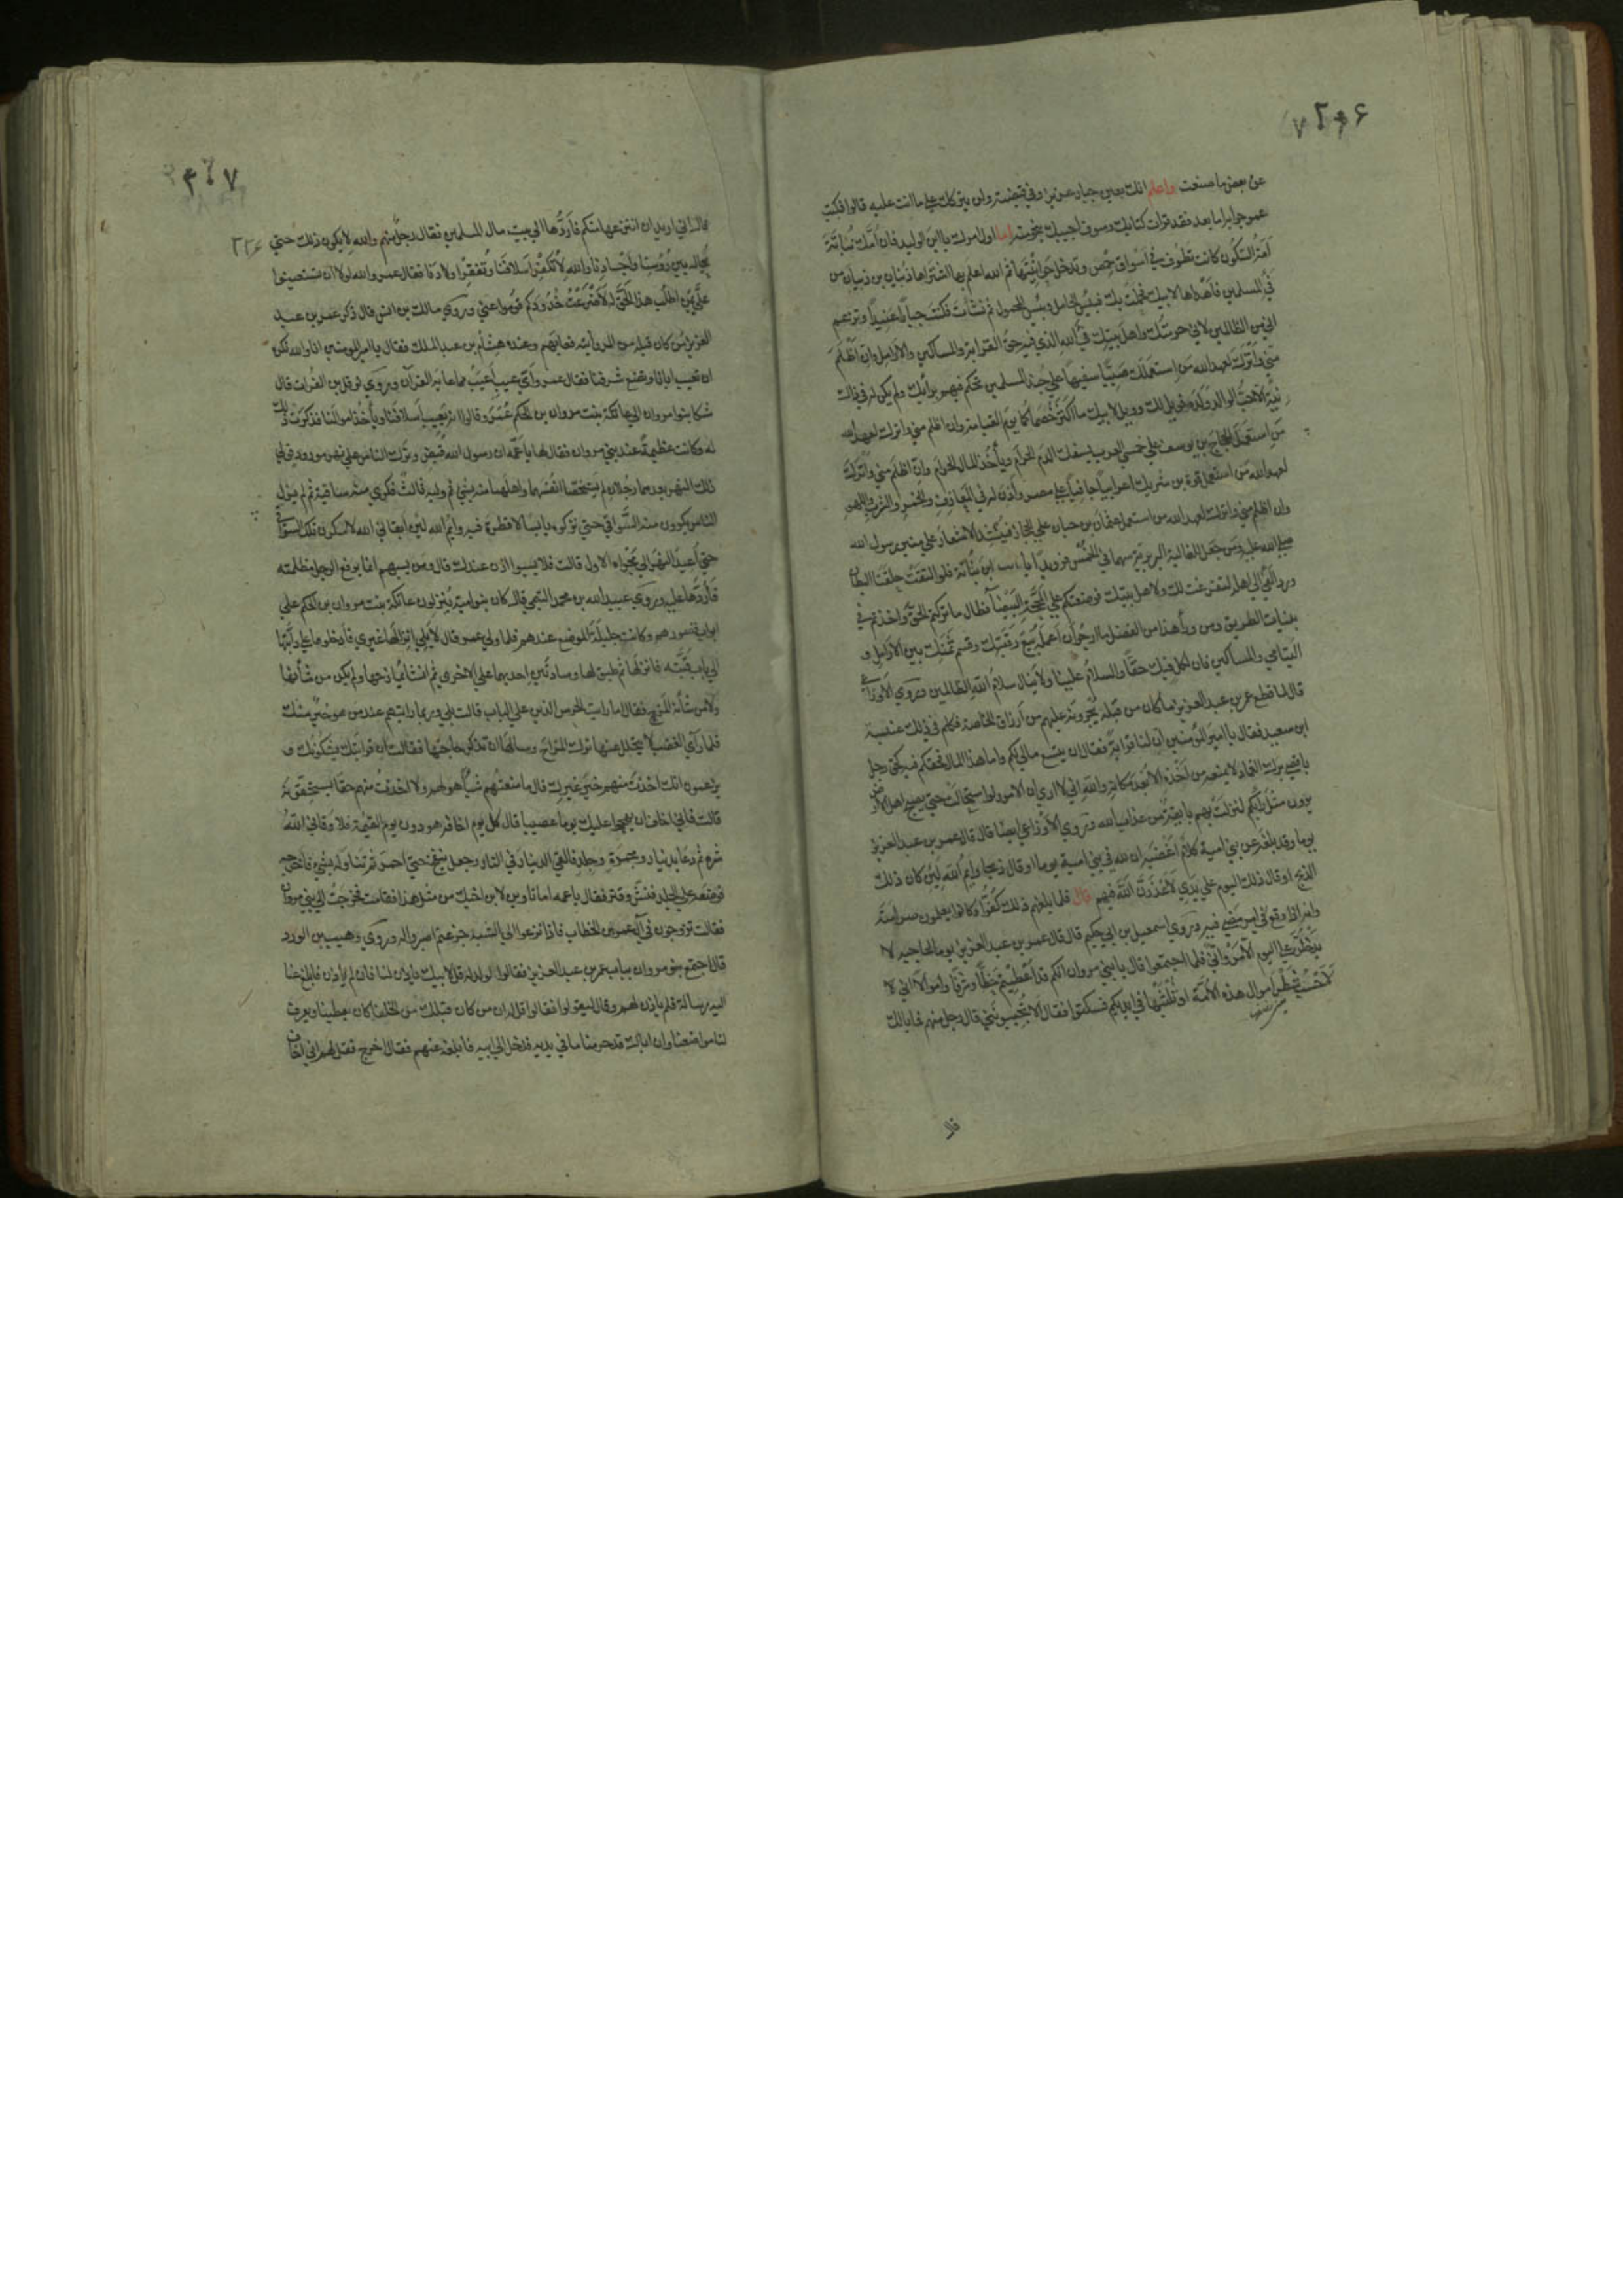 عن بعض ما صنعت واعلم انك بعين جبار عزيز وفي قبضته ولن يتركك على ما انت عليه قالوا فكتب
عمر جوابه اما بعد فقد قرات كتابك وسوف اجيبك بنحو منه اما اول امرك يا ابن الوليد فان امك نباتة
امة السكون كانت تطوف في اسواق حمص وتدخل حوانيتها ثم الله اعلم بها اشتراها ذبيان بن ذبيان من
فئ المسلمين فاهداها لابيك فحملت بك فبئس الحامل وبئس المحمول ثم نشأت فكنت جبارا عنيدا وتزعم
اني من الظالمين لاني حرمتك واهل بيتك فئ الله الذي فيه حق القرابة والمساكين والارامل وان اظلم
مني واترك لعهد الله من استعملك صبيا سفيها على جند المسلمين تحكم فيهم برأيك ولم يكن له في ذلك
نية الا حب الوالد ولده فويل لك وويل لابيك ما اكثر خصماءكما يوم القيامة وان اظلم مني واترك لعهد الله
من استعمل الحجاج بن يوسف على خمسي العرب يسفك الدم الحرام ويأخذ المال الحرام وان اظلم مني واترك
لعهد الله من استعمل قرة بن شريك اعرابيا جافيا على مصر واذن له في المعازف والخمر والشرب واللهو
وان اظلم مني واترك لعهد الله من استعمل عثمان بن حيان على الحجاز فينشد الاشعار على منبر رسول الله
صلى الله عليه ومن جعل للغالية البربرية سهما في الخمس فرويدا يا ابن نباتة فلو التقت حلقتا البطان
ورد الفئ الى اهله لتفرغت لك ولاهل بيتك فوضعتكم على المحجة البيضآ فطال ما تركتم الحق واخذتم في
بنيات الطريق ومن ورآء هذا من الفضل ما ارجو ان اعمله بيع رقبتك وقسم ثمنك بين الارامل و
اليتامي والمساكين فان لكل فيك حقا والسلام علينا ولا ينال سلام الله الظالمين وروي الاوزاعي
قال لما قطع عمر بن عبد العزيز ما كان من قبله يجرونه عليهم من ارزاق الخاصة فكلم في ذلك عنبسة
ابن سعيد فقال يا امير المؤمنين ان لنا قرابة فقال ان يتسع مالي لكم واما هذا المال فحقكم فيه كحق رجل
باقصى برك الغماد لا يمنعه من اخذه الا بعد مكانه والله اني لا ارى ان الامور لو استحالت حتى يصبح اهل الارض
يرون مثل رأيكم لنزلت بهم بايقة من عذاب الله وروي الاوزاعي ايضا قال قال عمر بن عبد العزيز
يوما وقد بلغه عن بني امية كلام اغضبه ان لله في بني امية يوما او قال ذبحا وايم الله لئن كان ذلك
الذبح او قال ذلك اليوم على يدي لاعذرن الله فيهم قال فلما بلغهم ذلك كفوا وكانوا يعلمون صرامته
وانه اذا وقع في امر مضى فيه وروي اسمعيل بن ابي حكيم قال قال عمر بن عبد العزيز يوما لحاجبه لا
يدخلن علي اليوم الا مرواني فلما اجتمعوا قال يا بني مروان انكم قد اعطيتم حظا وشرفا واموالا اني لا
حسب شطر اموال هذه الامة او ثلثيها في ايديكم فسكتوا فقال الا تجيبوني قال رجل منهم فما بالك
قال
٢٢٤
قال اني اريد ان انتزعها منكم فاردها الى بيت مال المسلمين فقال رجل منهم والله لا يكون ذلك حتى
يحال بين رؤسنا واجسادنا والله لا نكفر اسلافنا ونفقر اولادنا فقال عمر والله لولا ان تستعينوا
علي بمن اطلب هذا الحق له لاضرعت خدودكم قوموا عني وروي مالك بن انس قال ذكر عمر بن عبد
العزيز من كان قبله من المروانية فعابهم وعنده هشام بن عبد الملك فقال يا امير المومنين انا والله نكره
ان تعيب اباءنا وتضع شرفنا فقال عمر وأي عيب اعيب مما عابه القرآن وروي نوفل بن الفرات قال
شكا بنو امروان الى عاتكة بنت مروان بن الحكم عمر وقالوا انه يعيب اسلافنا ويأخذ اموالنا فذكرت ذلك
له وكانت عظيمة عند بني مروان فقال لها يا عمه ان رسول الله قبض وترك الناس على نهر مورود فولي
ذلك النهر بعده رجلان لم يستخصا انفسهما واهلهما منه بشئ ثم وليه ثالث فكري منه ساقية ثم لم يزل
الناس يكرون منه السواقي حتى تركوه يابسا لا قطرة فيه وايم الله لئن ابقاني الله لاسكرن تلك السواقي
حتى اعيد النهر الى مجراه الاول قالت فلا يسبوا اذن عندك قال ومن يسبهم انما يرفع الرجل مظلمته
فأردها عليه وروي عبيد الله بن محمد التيمي قال كان بنو امية ينزلون عاتكة بنت مروان بن الحكم على
ابواب قصورهم وكانت جليلة الموضع عندهم فلما ولي عمر قال لا يلي انزالها غيري فادخلوها على دابتها
الى باب قبته فانزلها ثم طبق لها وسادتين احديهما على الاخرى ثم انشأ يمازحها ولم يكن من شأنها
ولا من شأنه المزح فقال اما رأيت الحرس الذين على الباب قالت بلى وربما رأيتهم عند من هو خير منك
فلما رأى الغضب لا يتحلل عنها ترك المزاح وسألها ان تذكر حاجتها فقالت ان قرابتك يشكونك و
يزعمون انك اخذت منهم خير غيرك قال ما منعتهم شيأ هو لهم ولا اخذت منهم حقا يستحقونه
قالت فاني اخاف ان يهيجوا عليك يوما عصيبا قال كل يوم اخافه هو دون يوم القيمة فلا وقاني الله
شره ثم دعا بدينار ومجمرة وجلد فالقى الدينار في النار وجعل ينفخ حتى احمر ثم تناوله بشيء فاخرجه
فوضعه على الجلد فنش وقتر فقال يا عمه اما تأوين لابن اخيك من مثل هذا فقامت فخرجت الى بني مروان
فقالت تزوجون في آل عمر بن الخطاب فاذا نزعوا الى الشبه جزعتم اصبروا له وروي وهيب بن الورد
قال اجتمع بنو مروان بباب عمر بن عبد العزيز فقالوا لولد له قل لابيك يأذن لنا فان لم يأذن فابلغ عنا
اليه رسالة فلم يأذن لهم وقال فليقولوا فقالوا قل له ان من كان قبلك من الخلفا كان يعطينا ويعرف
لنا مواضعنا وان اباك قد حرمنا ما في يديه فدخل الى ابيه فابلغه عنهم فقال اخرج فقل لهم اني اخاف